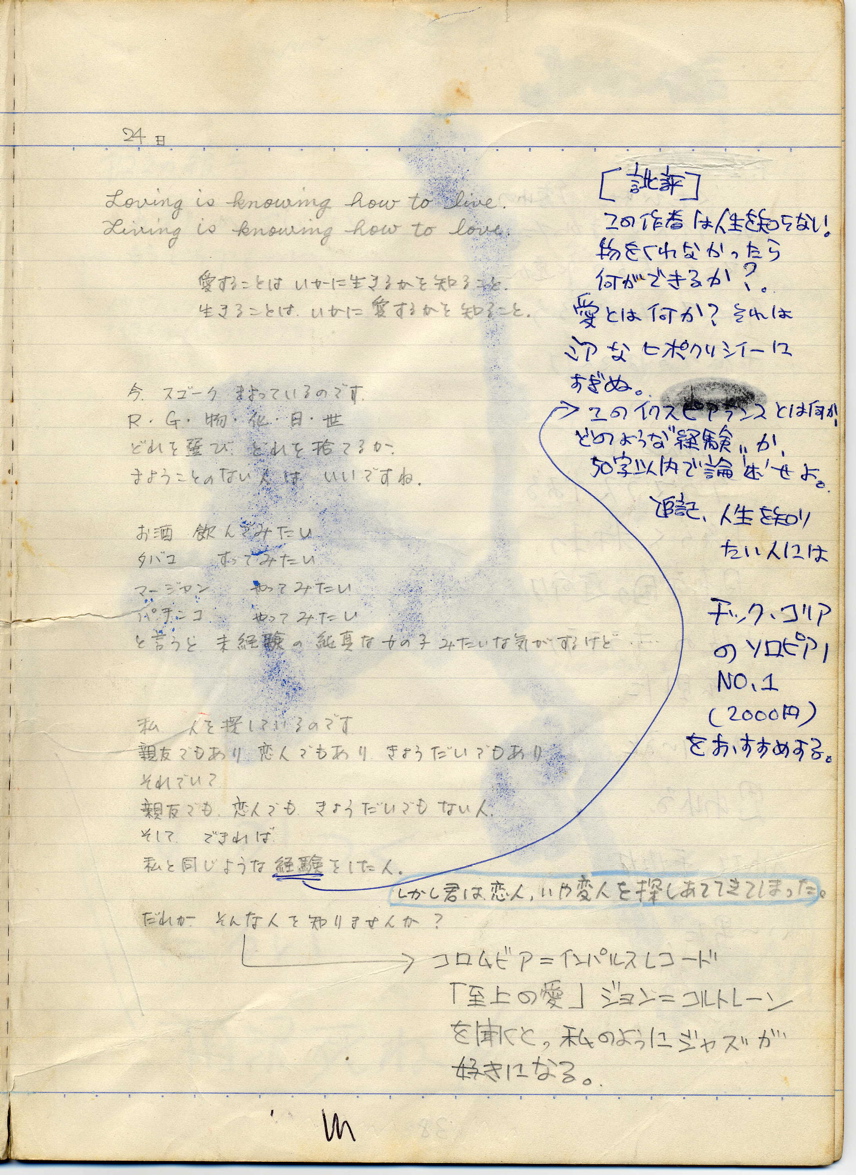 24日
Loving is knowing how to live.
Living is knowing how to love.
愛することは いかに生きるかを知ること.
生きることは. いかに 愛するかを 知ること.
今. スゴーク まよっているのです.
R・G・物・化・日・世
どれを選び. どれを捨てるか.
まようことのない人は いいですね.
お酒 飲んでみたい
タバコ すってみたい
マージャン やってみたい
パチンコ やってみたい
と言うと 未経験の 純真な 女の子 みたいな気がするけど…
私 人を探しているのです
親友でもあり 恋人でもあり きょうだいでもあり
それでいて
親友でも. 恋人でも. きょうだいでも ない人.
そして できれば
私と同じような 経験をした人.
しかし君は恋人, いや変人を探しあててきてしまった。
だれか そんな人を知りませんか?
コロムビア=インパルスレコード
「至上の愛」ジョン=コルトレーン
を聞くと, 私のようにジャズが
好きになる。
[批評]
この作者は人生を知らない!
物をくれなかったら
何ができるか?。
愛とは何か? それは
なヒポクリシィーに
すぎぬ。
このイクスピアランスとは何か
どのような"経験"か,
50字以内で論述せよ。
追記、人生を知り
たい人には
チック、コリア
のソロピアノ
NO.1
(2000円)
をおすすめする。